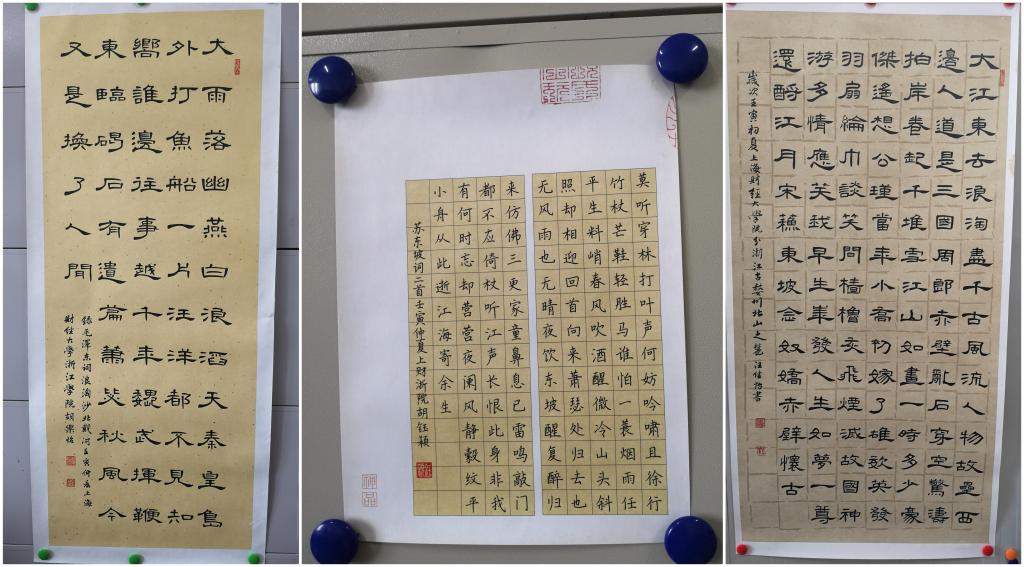 大雨落幽燕白浪滔天秦皇島
外打魚船一片汪洋都不見知
嚮誰邊往事越千年魏武揮鞭
東臨碣石有遺篇蕭瑟秋風今
又是換了人間
錄毛澤東詞浪淘沙北戴河壬寅仲夏上海
財經大學浙江學院胡樂怡
莫听穿林打叶声何妨吟啸且徐行
竹杖芒鞋轻胜马谁怕一蓑烟雨任
平生料峭春风吹酒醒微冷山头斜
照却相迎回首向来萧瑟处归去也
无风雨也无晴夜饮东坡醒复醉归
来仿佛三更家童鼻息已雷鸣敲门
都不应倚杖听江声长恨此身非我
有何时忘却营营夜阑风静縠纹平
小舟从此逝江海寄余生
苏东坡词二首壬寅仲夏上财浙院胡钰颖
大江東去浪淘盡千古風流人物故壘西
邊人道是三國周郎赤壁亂石穿空驚濤
拍岸卷起千堆雪江山如畫一時多少豪
傑遙想公瑾當年小喬初嫁了雄姿英發
羽扇綸巾談笑間檣櫓灰飛煙滅故國神
游多情應笑我早生華發人生如夢一尊
還酹江月宋蘇東坡念奴嬌赤壁懷古
歲次壬寅初夏上海財經大學院於浙江古婺州北山之麓汪佳怡書